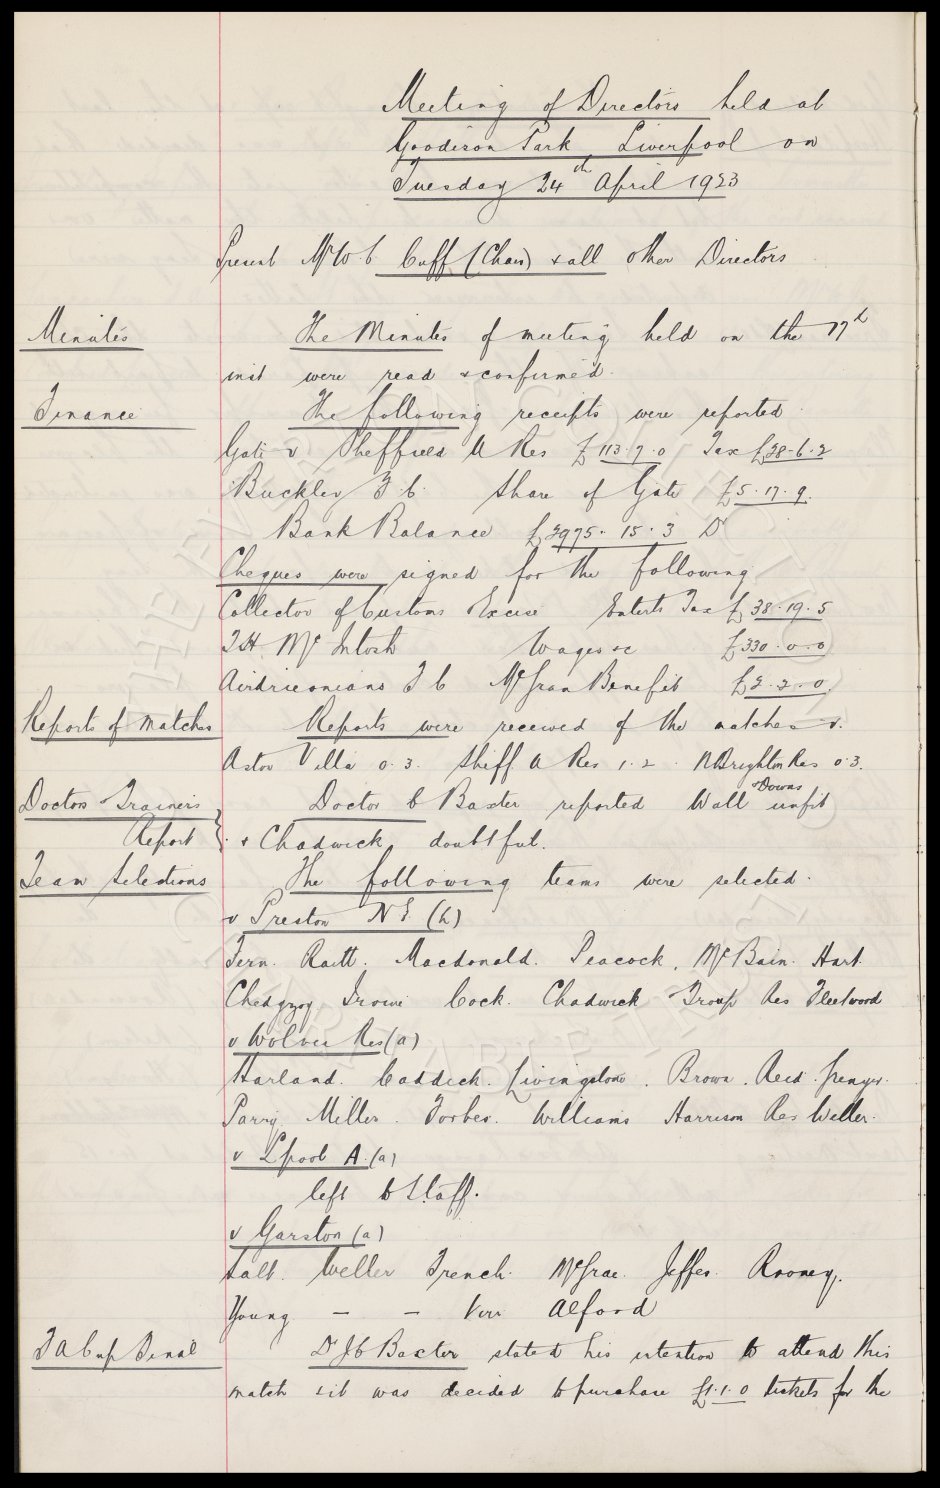 Meeting of Directors held at
Goodison Park Liverpool on
Tuesday 24th April 1923
Present Mr W C Cuff (Chair) & all other Directors
Minutes The Minutes of meeting held on the 17th
inst were read & confirmed.
Finance The following receipts were reported
Gate v Sheffield U Res £113.7.0 Tax £28-6-2
Buckley F C. Share of Gate £5.17.9.
Bank Balance £3975.15.3 Dr
Cheques were signed for the following
Collector of Customs & Excise Enterts Tax £38.19.5
T.H. McIntosh Wages &c £330.0.0
Airdrieonians F C McGran Benefit £2.2.0
Reports of Matches Reports were received of the matches v.
Aston Villa 0.3. Sheff U Res 1.2. N Brighton Res 0.3.
Doctors & Trainers Doctor C Baxter reported Wall & Downs unfit
Report & Chadwick doubtful.
Team Selections The following teams were selected.
v Preston N E (h)
Fern. Raitt. Macdonald. Peacock. McBain. Hart.
Chedgzoy Irvine Cock. Chadwick Troup Res Fleetwood
v Wolves Res (a)
Harland. Caddick. Livingstone. Brown. Reid. Grenyer.
Parry. Miller. Forbes. Williams Harrison Res Weller.
v Lpool A. (a)
left to Staff.
v Garston (a)
Salt. Weller French. McGrae. Jeffes. Rooney.
Young — — Kerr Alford
F A Cup Final Dr J C Baxter stated his intention to attend this
match & it was decided to purchase £1.1.0 tickets for the